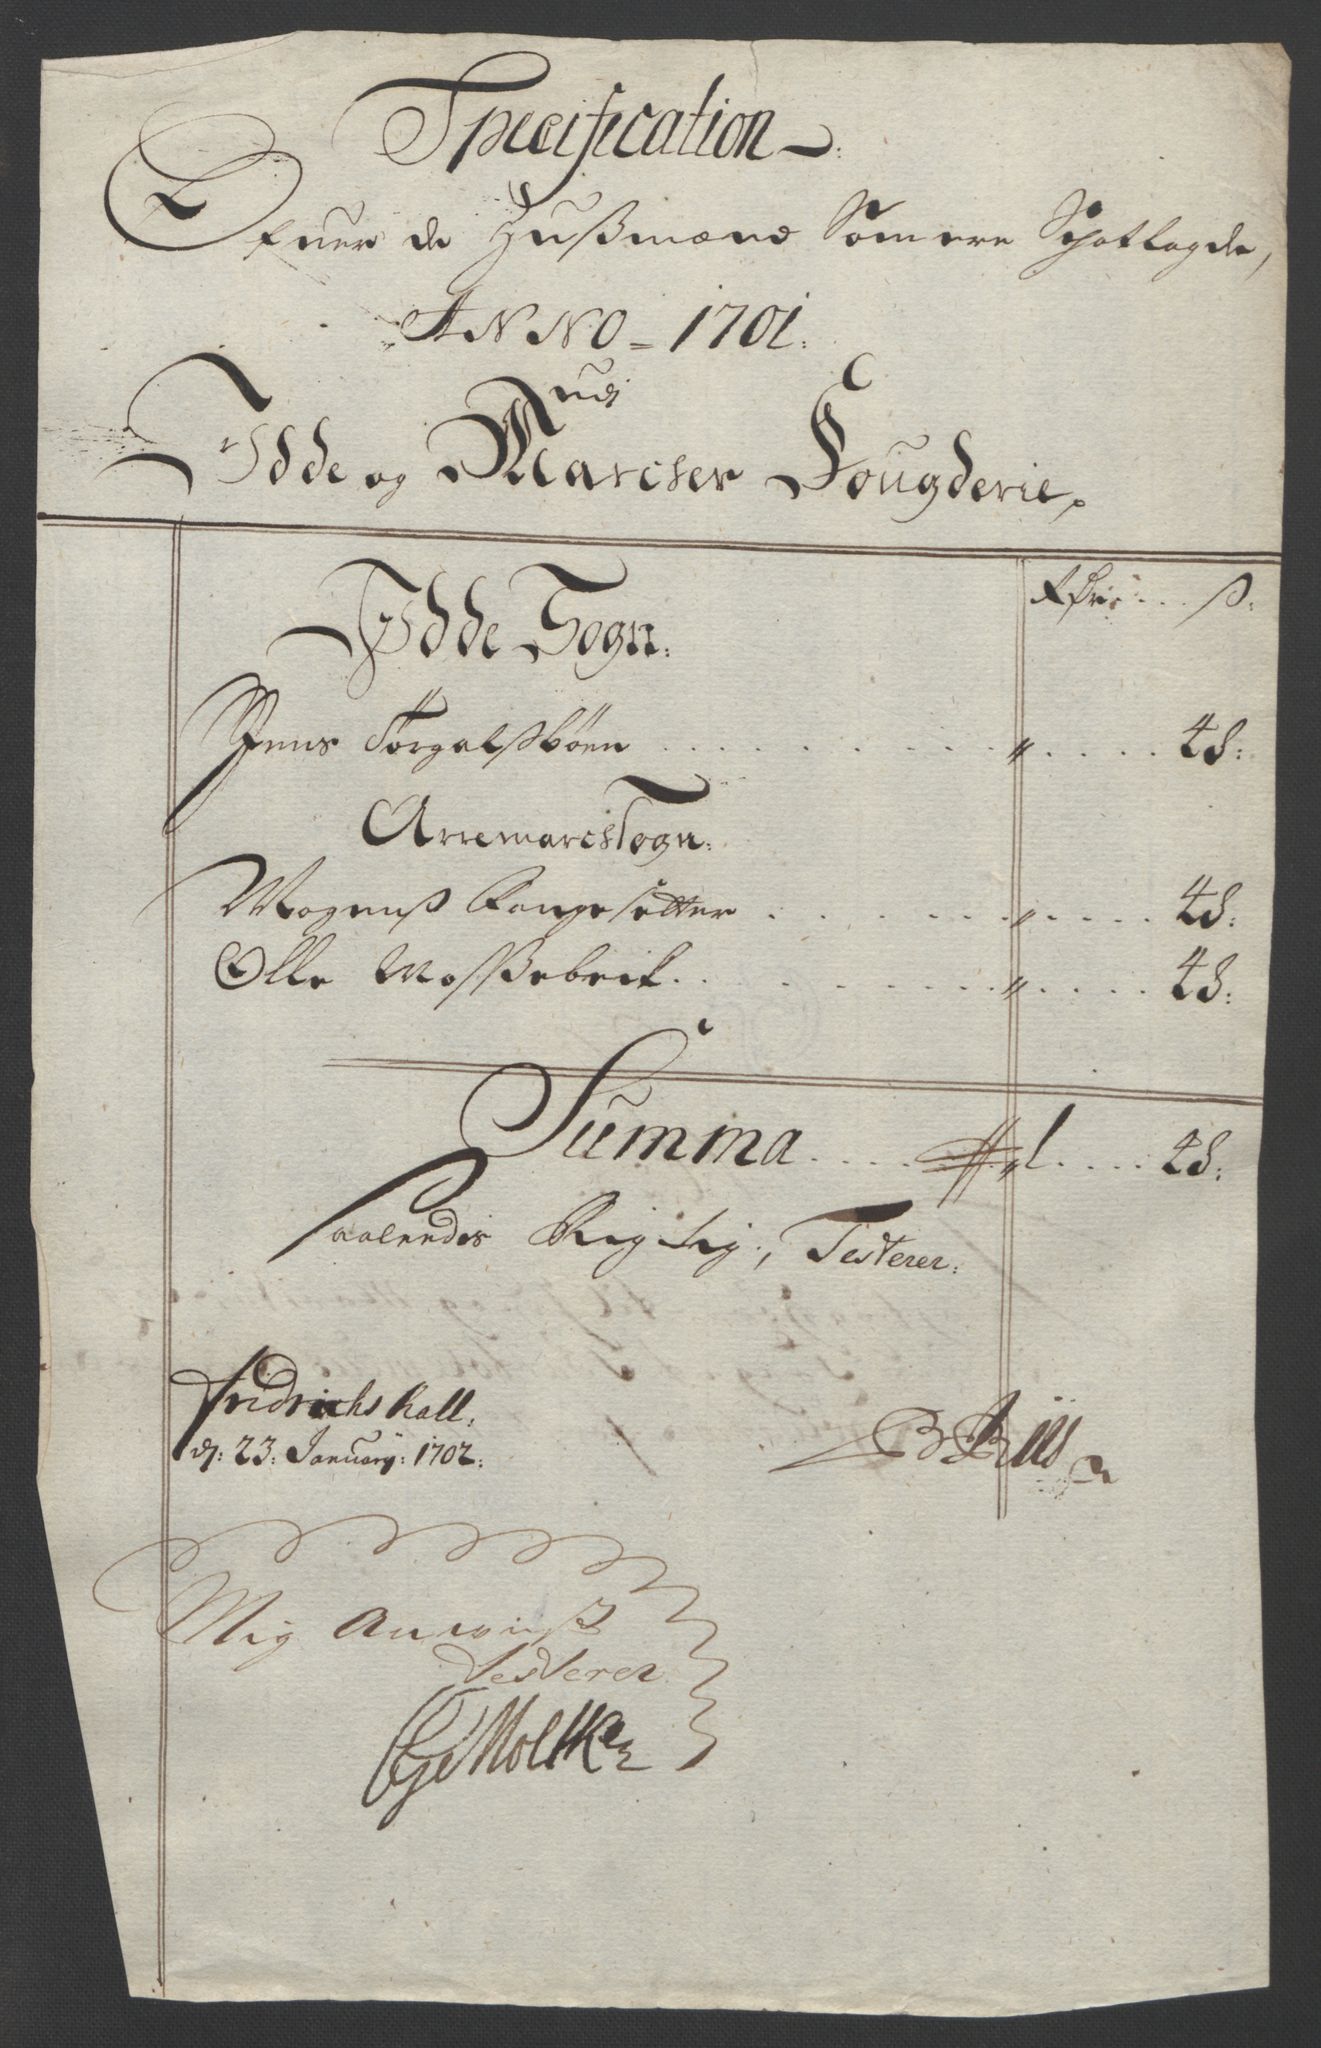 Specification
Ofuer de Hußmænd Som ere Schatlagde,
ANNO - 1701.
udj
Idde og Marcher Fougderie,
Idde Sogn:
Rdr ... ß:
Jens Torgalsbøen . . . . . . . . " . . . . 48:
Arremarch Sogn:
Mogenß Kangesetter . . . . . . " . . . . 48:
Olle Moßebeck . . . . . . . . . " . . . . 48:
Summa . . . . 1 . . . . 48:
Saaleedis Rigtig, Testerer:
Fridrichshall,
dj: 23: January: 1702:
Mig Anwist
Testerer
Oge Moltke